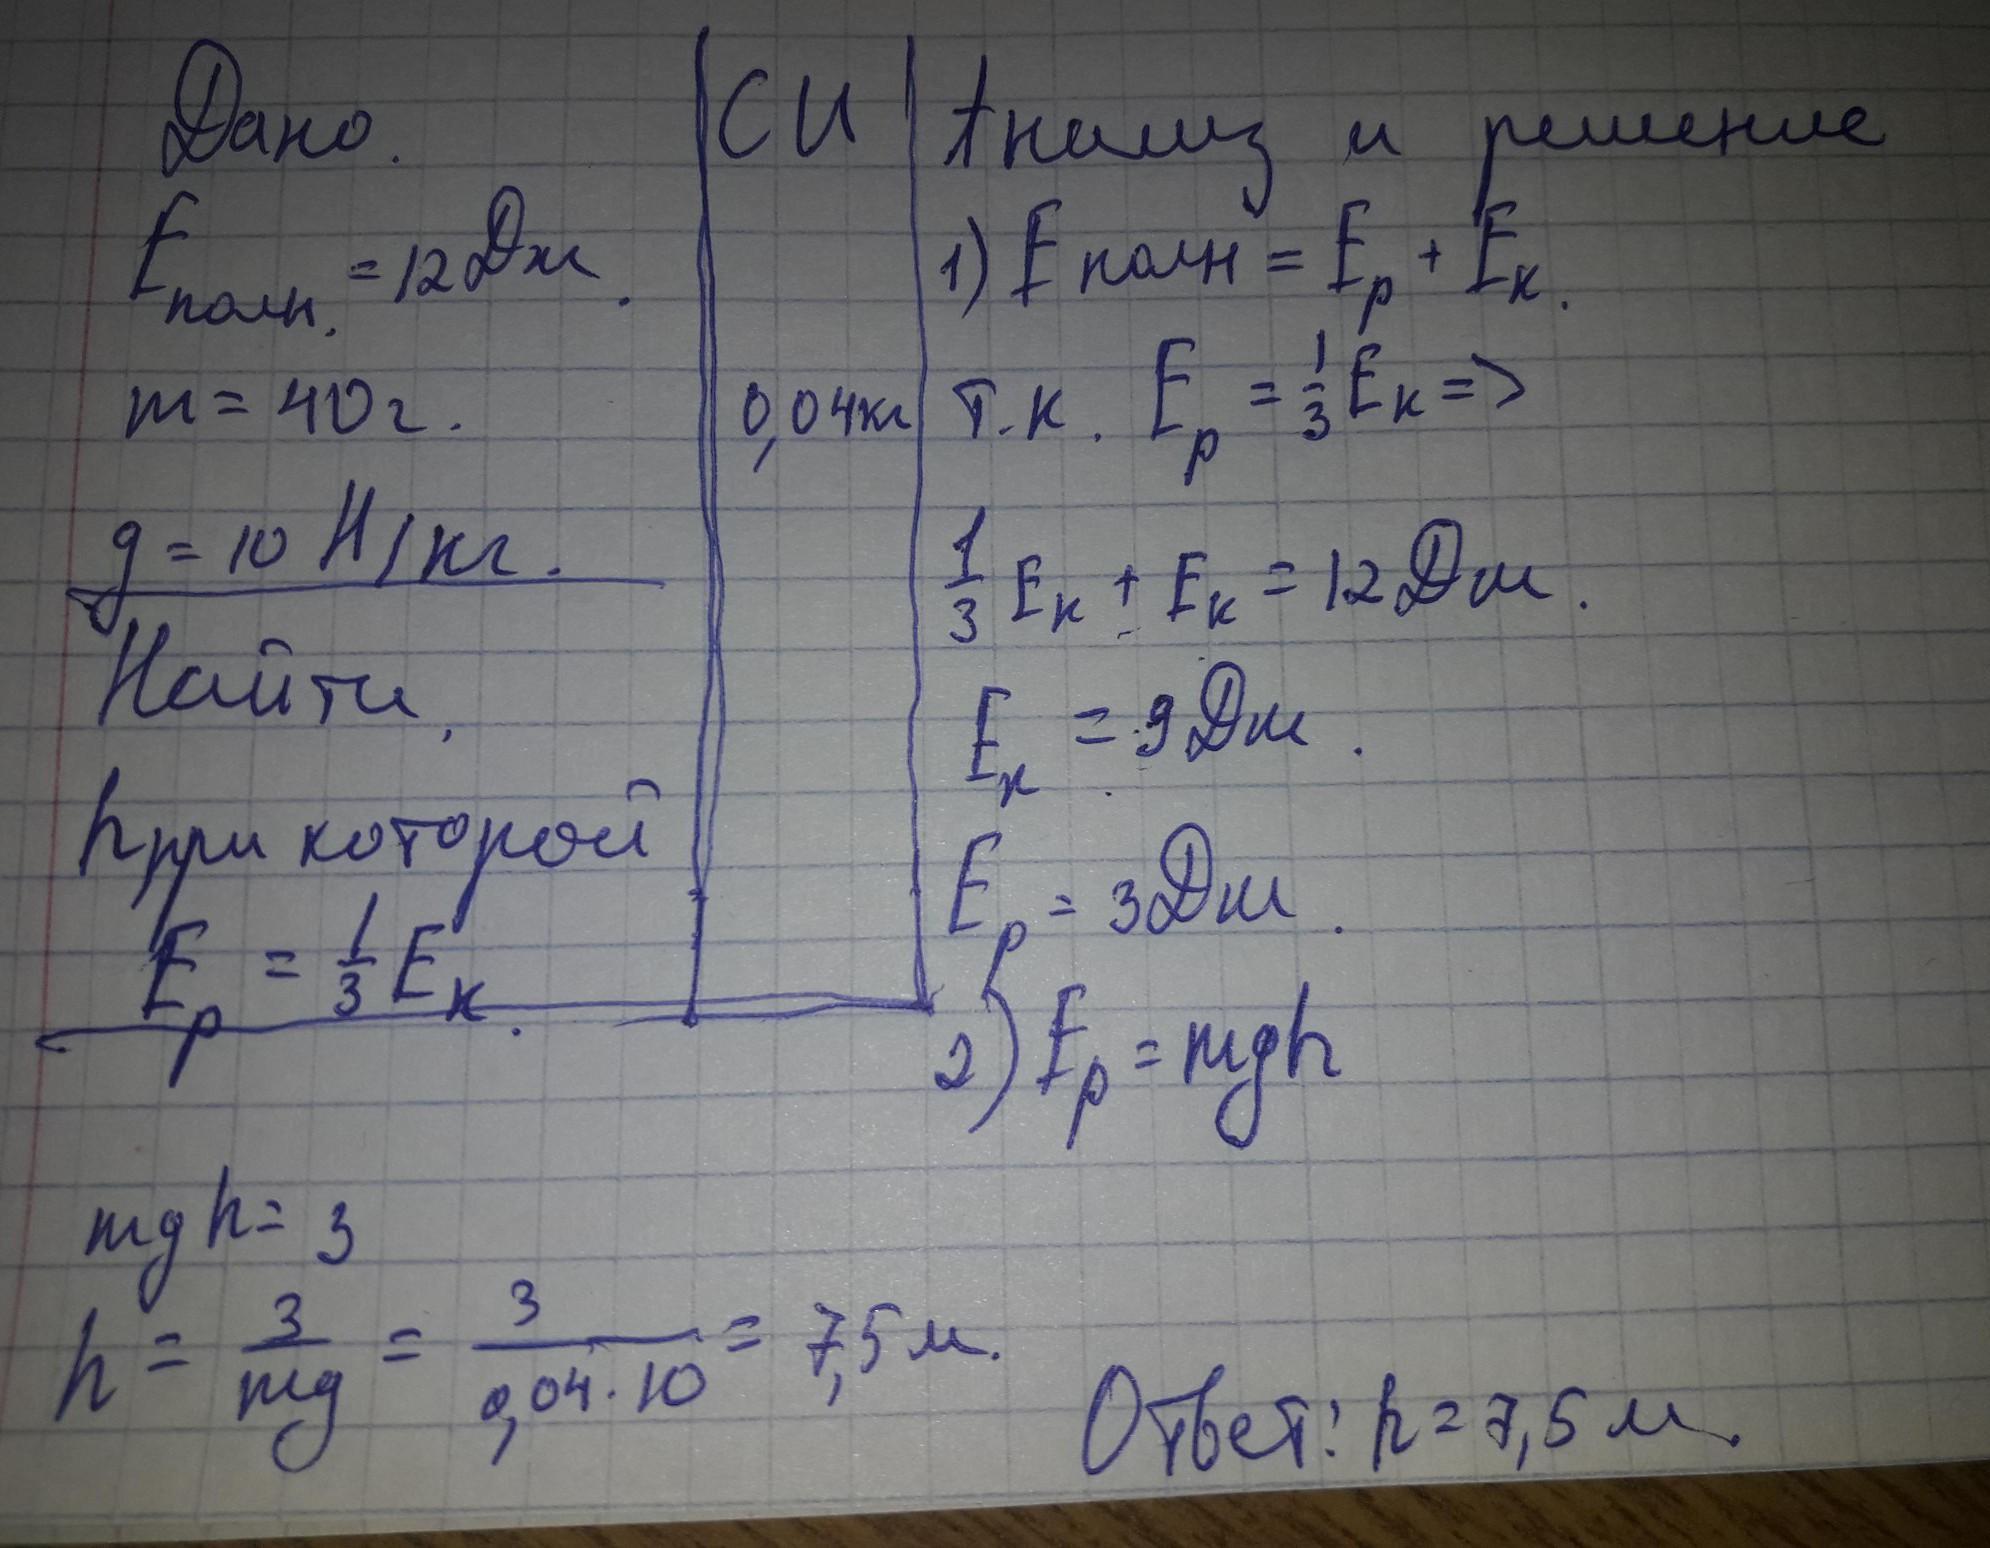 Дано.
Eполн. = 12 Дж.
m = 40 г.
g = 10 Н/кг.
Найти,
h при которой
Ep = 1/3 Eк.
СИ
0,04кг
Анализ и решение
1) Eполн = Ep + Eк.
т.к. Ep = 1/3 Eк =>
1/3 Eк + Eк = 12 Дж.
Eк = 9 Дж.
Ep = 3 Дж.
2) Ep = mgh
mgh = 3
h = 3/mg = 3/0,04·10 = 7,5 м.
Ответ: h = 7,5 м.